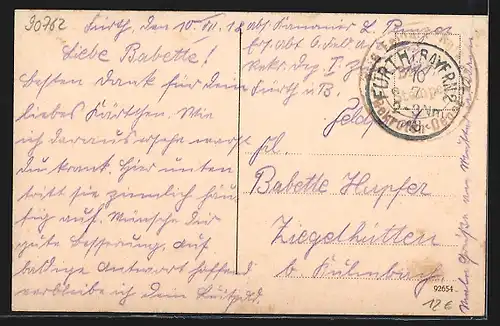 30762
Fürth, den 10. VII. 18
Liebe Babette!
besten Dank für dein
liebes Kärtchen. Wie
ich daraus ersehe warst
du krank. Hier unten
tritt sie ziemlich häu-
fig auf. Wünsche dir
gute Besserung. Auf
baldige Antwort hoffend
verbleibe ich dein
abs. Kanonier L.
Ers. Abt. 6. Feld a.
Rekr. Dep. I.
Fürth i. B.
FÜRTH (BAYERN) 2
10
7
Frl.
Babette Hupfer
Ziegelhütten
b Kulmbach
92654
12 €